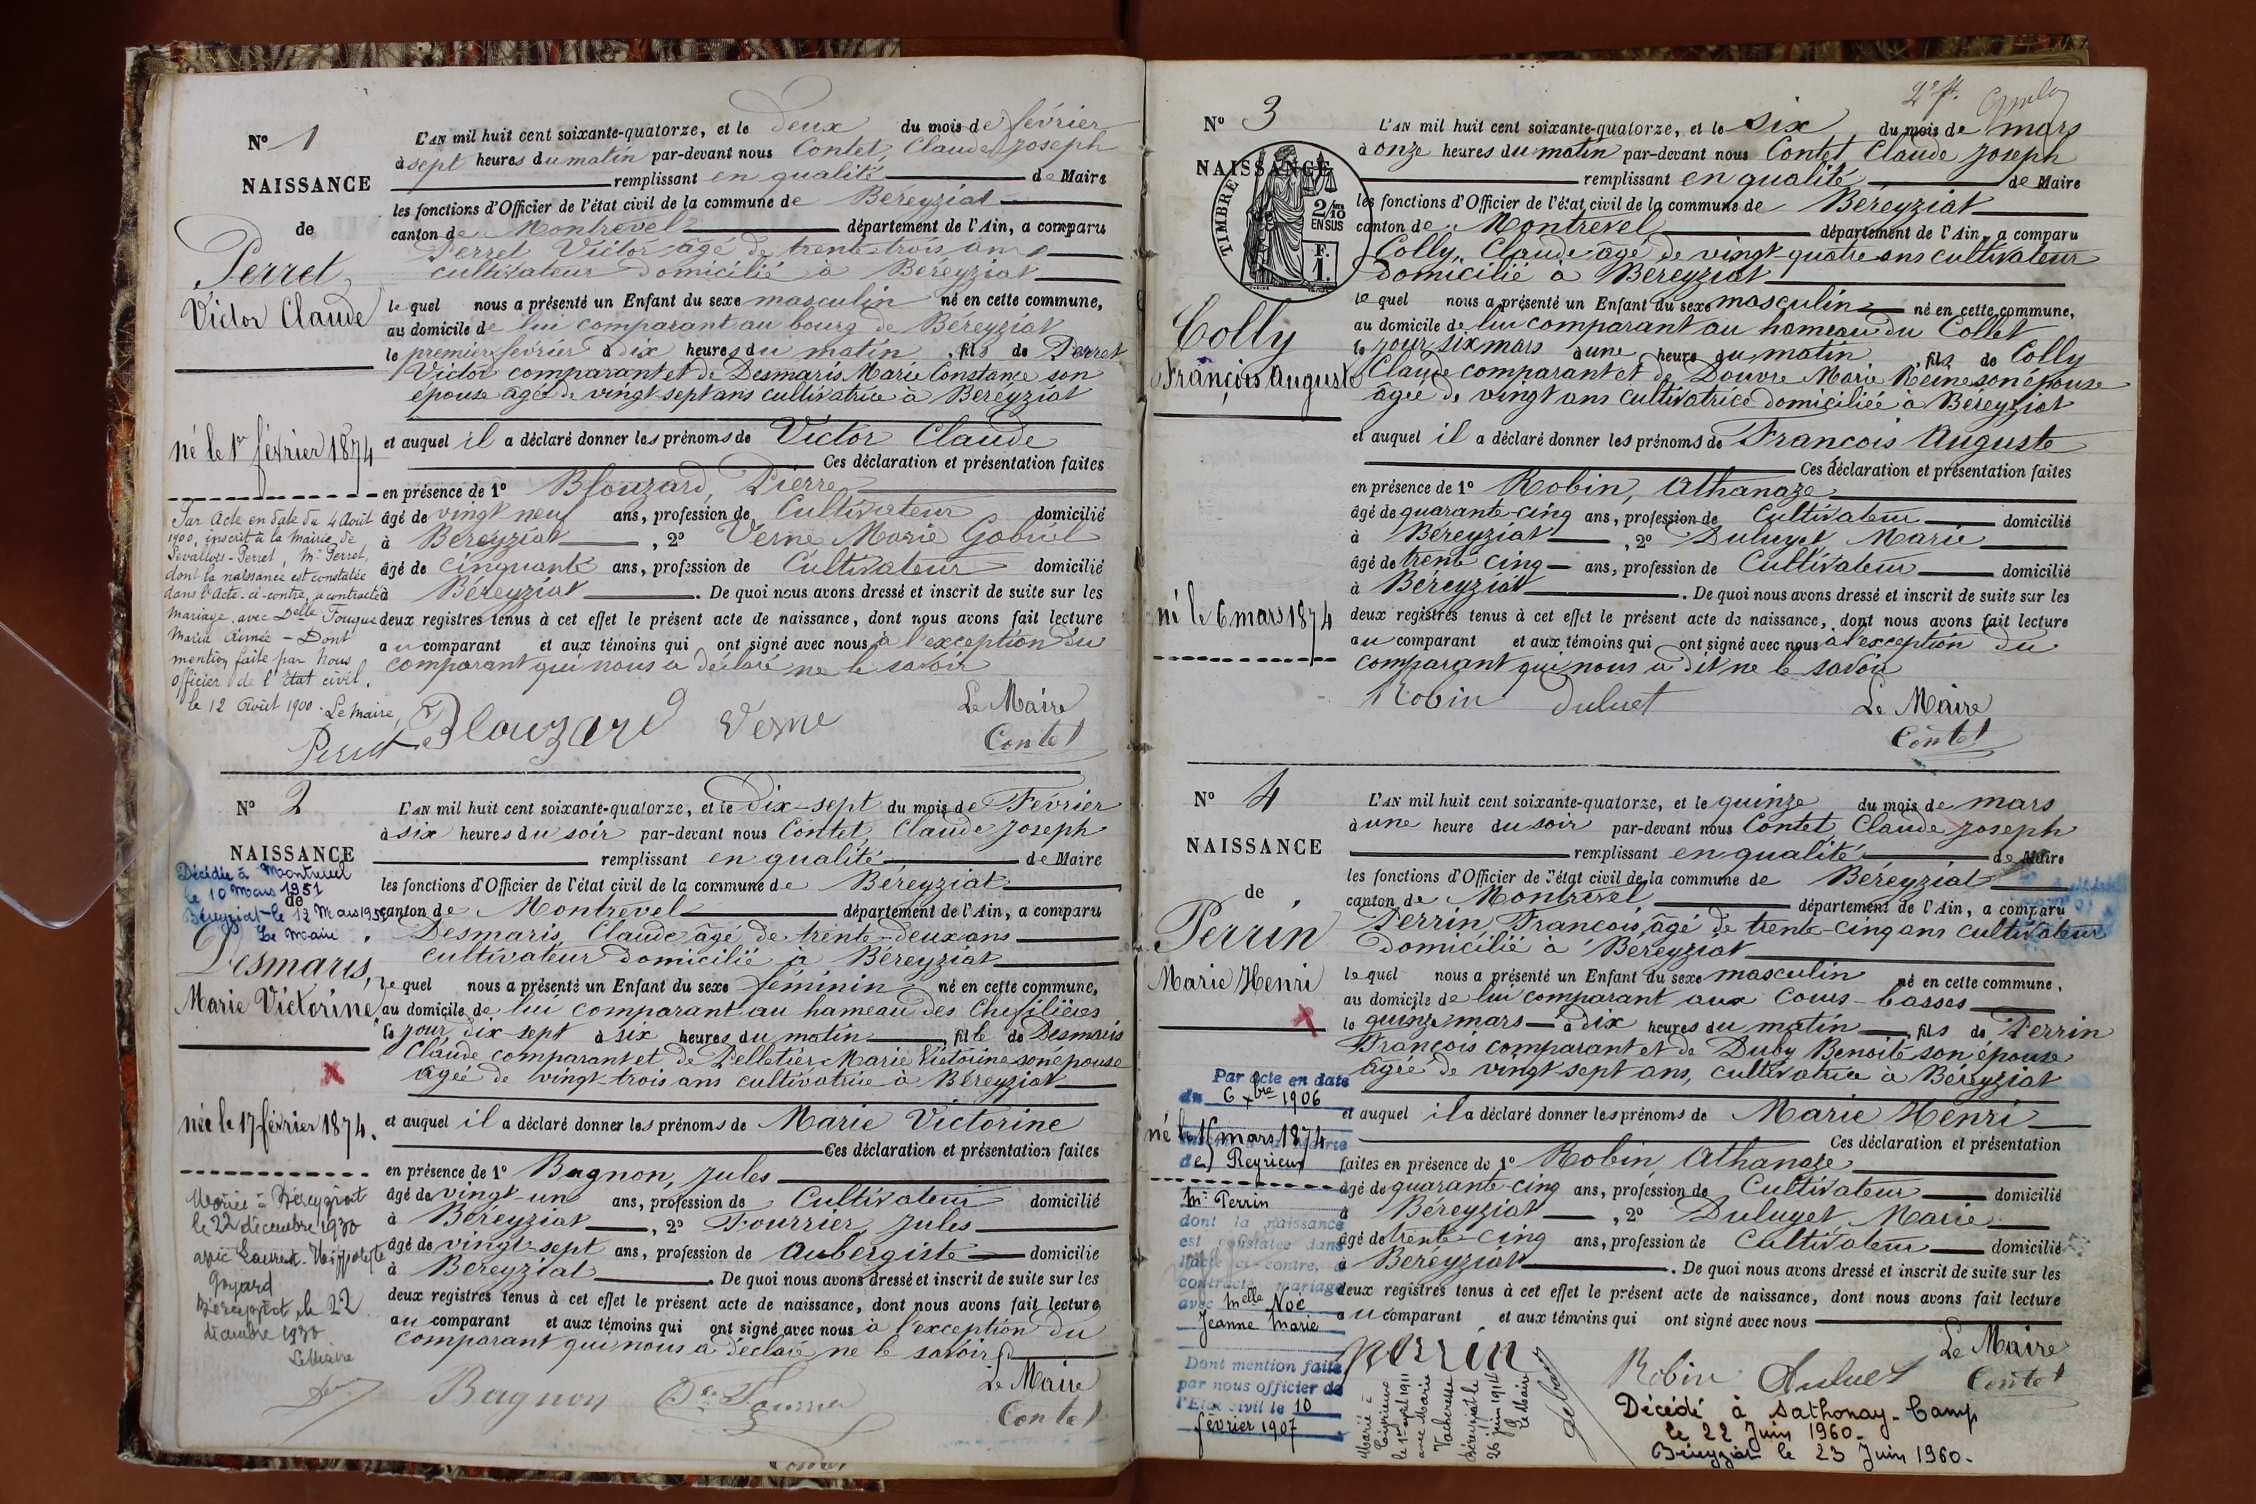 Nº 1
NAISSANCE
de
Perret
Victor Claude
né le 1er février 1874
Par Acte en date du 4 Août
1900, inscrit à la Mairie de
Levallois-Perret, Mr Perret,
dont la naissance est constatée
dans l'Acte ci-contre, a contracté
mariage avec Delle Fouque
Marie Aimée – Dont
mention faite par Nous
Officier de l'Etat civil.
le 12 Août 1900. Le Maire,
L'AN mil huit cent soixante-quatorze, et le deux du mois de février
à sept heures du matin par-devant nous Contet, Claude Joseph
remplissant en qualité de Maire
les fonctions d'Officier de l'état civil de la commune de Béreyziat
canton de Montrevel département de l'Ain, a comparu
Perret Victor âgé de trente-trois ans
cultivateur domicilié à Béreyziat
le quel nous a présenté un Enfant du sexe masculin né en cette commune,
au domicile de lui comparant au bourg de Béreyziat
le premier février à dix heures du matin, fils de Perret
Victor comparant et de Desmaris Marie Constance son
épouse âgée de vingt sept ans cultivatrice à Béreyziat
et auquel il a déclaré donner les prénoms de Victor Claude
Ces déclaration et présentation faites
en présence de 1º Blouzard, Pierre
âgé de vingt neuf ans, profession de Cultivateur domicilié
à Béreyziat, 2º Verne Marie Gabriel
âgé de cinquante ans, profession de Cultivateur domicilié
à Béreyziat. De quoi nous avons dressé et inscrit de suite sur les
deux registres tenus à cet effet le présent acte de naissance, dont nous avons fait lecture
au comparant et aux témoins qui ont signé avec nous à l'exception du
comparant qui nous a déclaré ne le savoir
Blouzard Verne Le Maire
Contet
Nº 2
NAISSANCE
Décédée à Montrevel
le 10 Mars 1951
de
Béreyziat le 12 Mars 1951
Le Maire
Desmaris,
Marie Victorine
née le 17 février 1874.
Mariée à Béreyziat
le 22 décembre 1930
avec Laurent-Hippolyte
Goyard
Béreyziat le 22
décembre 1930
Le Maire
L'AN mil huit cent soixante-quatorze, et le Dix-sept du mois de Février
à six heures du soir par-devant nous Contet, Claude Joseph
remplissant en qualité de Maire
les fonctions d'Officier de l'état civil de la commune de Béreyziat
canton de Montrevel département de l'Ain, a comparu
Desmaris, Claude âgé de trente-deux ans
cultivateur domicilié à Béreyziat
le quel nous a présenté un Enfant du sexe féminin né en cette commune,
au domicile de lui comparant au hameau des Chefilières
le jour dix sept à six heures du matin, fille de Desmaris
Claude comparant et de Pelletier Marie Victorine son épouse
âgée de vingt-trois ans cultivatrice à Béreyziat
et auquel il a déclaré donner les prénoms de Marie Victorine
Ces déclaration et présentation faites
en présence de 1º Bagnon, Jules
âgé de vingt-un ans, profession de Cultivateur domicilié
à Béreyziat, 2º Fourrier, Jules
âgé de vingt-sept ans, profession de Aubergiste domicilié
à Béreyziat. De quoi nous avons dressé et inscrit de suite sur les
deux registres tenus à cet effet le présent acte de naissance, dont nous avons fait lecture
au comparant et aux témoins qui ont signé avec nous à l'exception du
comparant qui nous a déclaré ne le savoir
Bagnon Le Maire
Contet
2e ft.
Nº 3
NAISSANCE
de
TIMBRE
2/10
EN SUS
F.
1.
Colly
François Auguste
né le 6 mars 1874
L'AN mil huit cent soixante-quatorze, et le six du mois de mars
à onze heures du matin par-devant nous Contet, Claude Joseph
remplissant en qualité de Maire
les fonctions d'Officier de l'état civil de la commune de Béreyziat
canton de Montrevel département de l'Ain, a comparu
Colly, Claude âgé de vingt-quatre ans cultivateur
domicilié à Béreyziat
le quel nous a présenté un Enfant du sexe masculin né en cette commune,
au domicile de lui comparant au hameau du Collet
le jour six mars à une heure du matin, fils de Colly
Claude comparant et de Douvre Marie Reine son épouse
âgée de vingt ans cultivatrice domiciliée à Béreyziat
et auquel il a déclaré donner les prénoms de François Auguste
Ces déclaration et présentation faites
en présence de 1º Robin, Athanaze
âgé de quarante-cinq ans, profession de Cultivateur domicilié
à Béreyziat, 2º Duluyet Marie
âgé de trente cinq ans, profession de Cultivateur domicilié
à Béreyziat. De quoi nous avons dressé et inscrit de suite sur les
deux registres tenus à cet effet le présent acte de naissance, dont nous avons fait lecture
au comparant et aux témoins qui ont signé avec nous à l'exception du
comparant qui nous a dit ne le savoir
Robin Duluet Le Maire
Contet
Nº 4
NAISSANCE
de
Perrin
Marie Henri
Par acte en date
du 6 Xbre 1906
né le 15 mars 1874
de Reyrieux
Mr Perrin
dont la naissance
est constatée dans
l'acte ci-contre, a
contracté mariage
avec Melle Noé
Jeanne Marie
Dont mention faite
par nous officier de
l'Etat civil le 10
février 1907
L'AN mil huit cent soixante-quatorze, et le quinze du mois de mars
à une heure du soir par-devant nous Contet, Claude Joseph
remplissant en qualité de Maire
les fonctions d'Officier de l'état civil de la commune de Béreyziat
canton de Montrevel département de l'Ain, a comparu
Perrin François, âgé de trente-cinq ans cultivateur
domicilié à Béreyziat
le quel nous a présenté un Enfant du sexe masculin né en cette commune,
au domicile de lui comparant aux Cours-basses
le quinze mars à dix heures du matin, fils de Perrin
François comparant et de Duby Benoîte son épouse
âgée de vingt sept ans, cultivatrice à Béreyziat
et auquel il a déclaré donner les prénoms de Marie Henri
Ces déclaration et présentation
faites en présence de 1º Robin Athanaze
âgé de quarante-cinq ans, profession de Cultivateur domicilié
à Béreyziat, 2º Duluyet, Marie
âgé de trente-cinq ans, profession de Cultivateur domicilié
à Béreyziat. De quoi nous avons dressé et inscrit de suite sur les
deux registres tenus à cet effet le présent acte de naissance, dont nous avons fait lecture
au comparant et aux témoins qui ont signé avec nous
perrin Robin Duluet Le Maire
Contet
Marié à
Civrieux
le 1er avril 1911
avec Marie
Vacheresse
Béreyziat le
26 juin 1914
Le Maire
Décédé à Sathonay-Camp
le 22 Juin 1960.
Béreyziat le 23 Juin 1960.